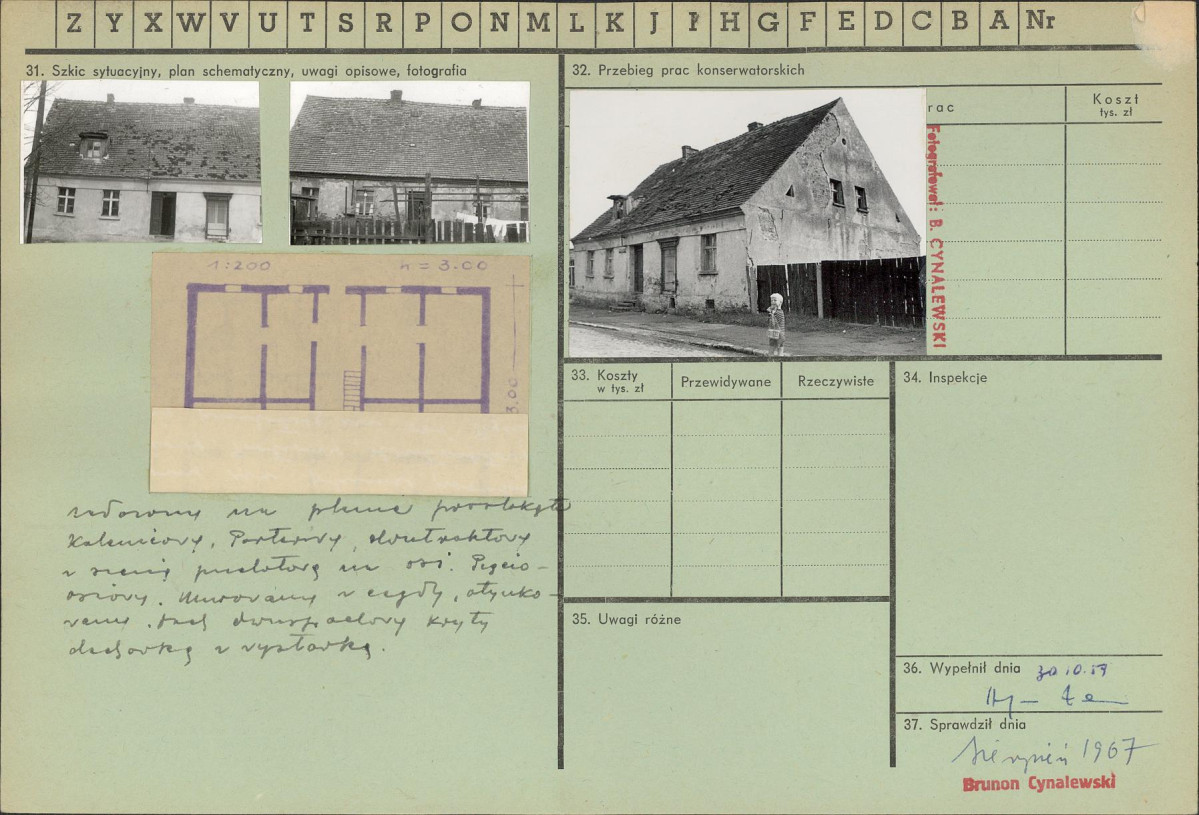 Z Y X W V U T S R P O N M L K J I H G F E D C B A Nr
31. Szkic sytuacyjny, plan schematyczny, uwagi opisowe, fotografia
32. Przebieg prac konserwatorskich
rac
Koszt
tys. zł
Fotografował: B. CYNALEWSKI
1:200 h = 3.00
3.00
33. Koszty
w tys. zł
Przewidywane
Rzeczywiste
34. Inspekcje
na planie prostokąta
Kalenicowy, Parterowy, dwutraktowy
z sienią przelotową na osi. Pięcio-
osiowy. Murowany z cegły, otynko-
wany. Dach dwuspadowy kryty
dachówką z wystawką.
35. Uwagi różne
36. Wypełnił dnia 30.10.59
37. Sprawdził dnia
Sierpień 1967
Brunon Cynalewski